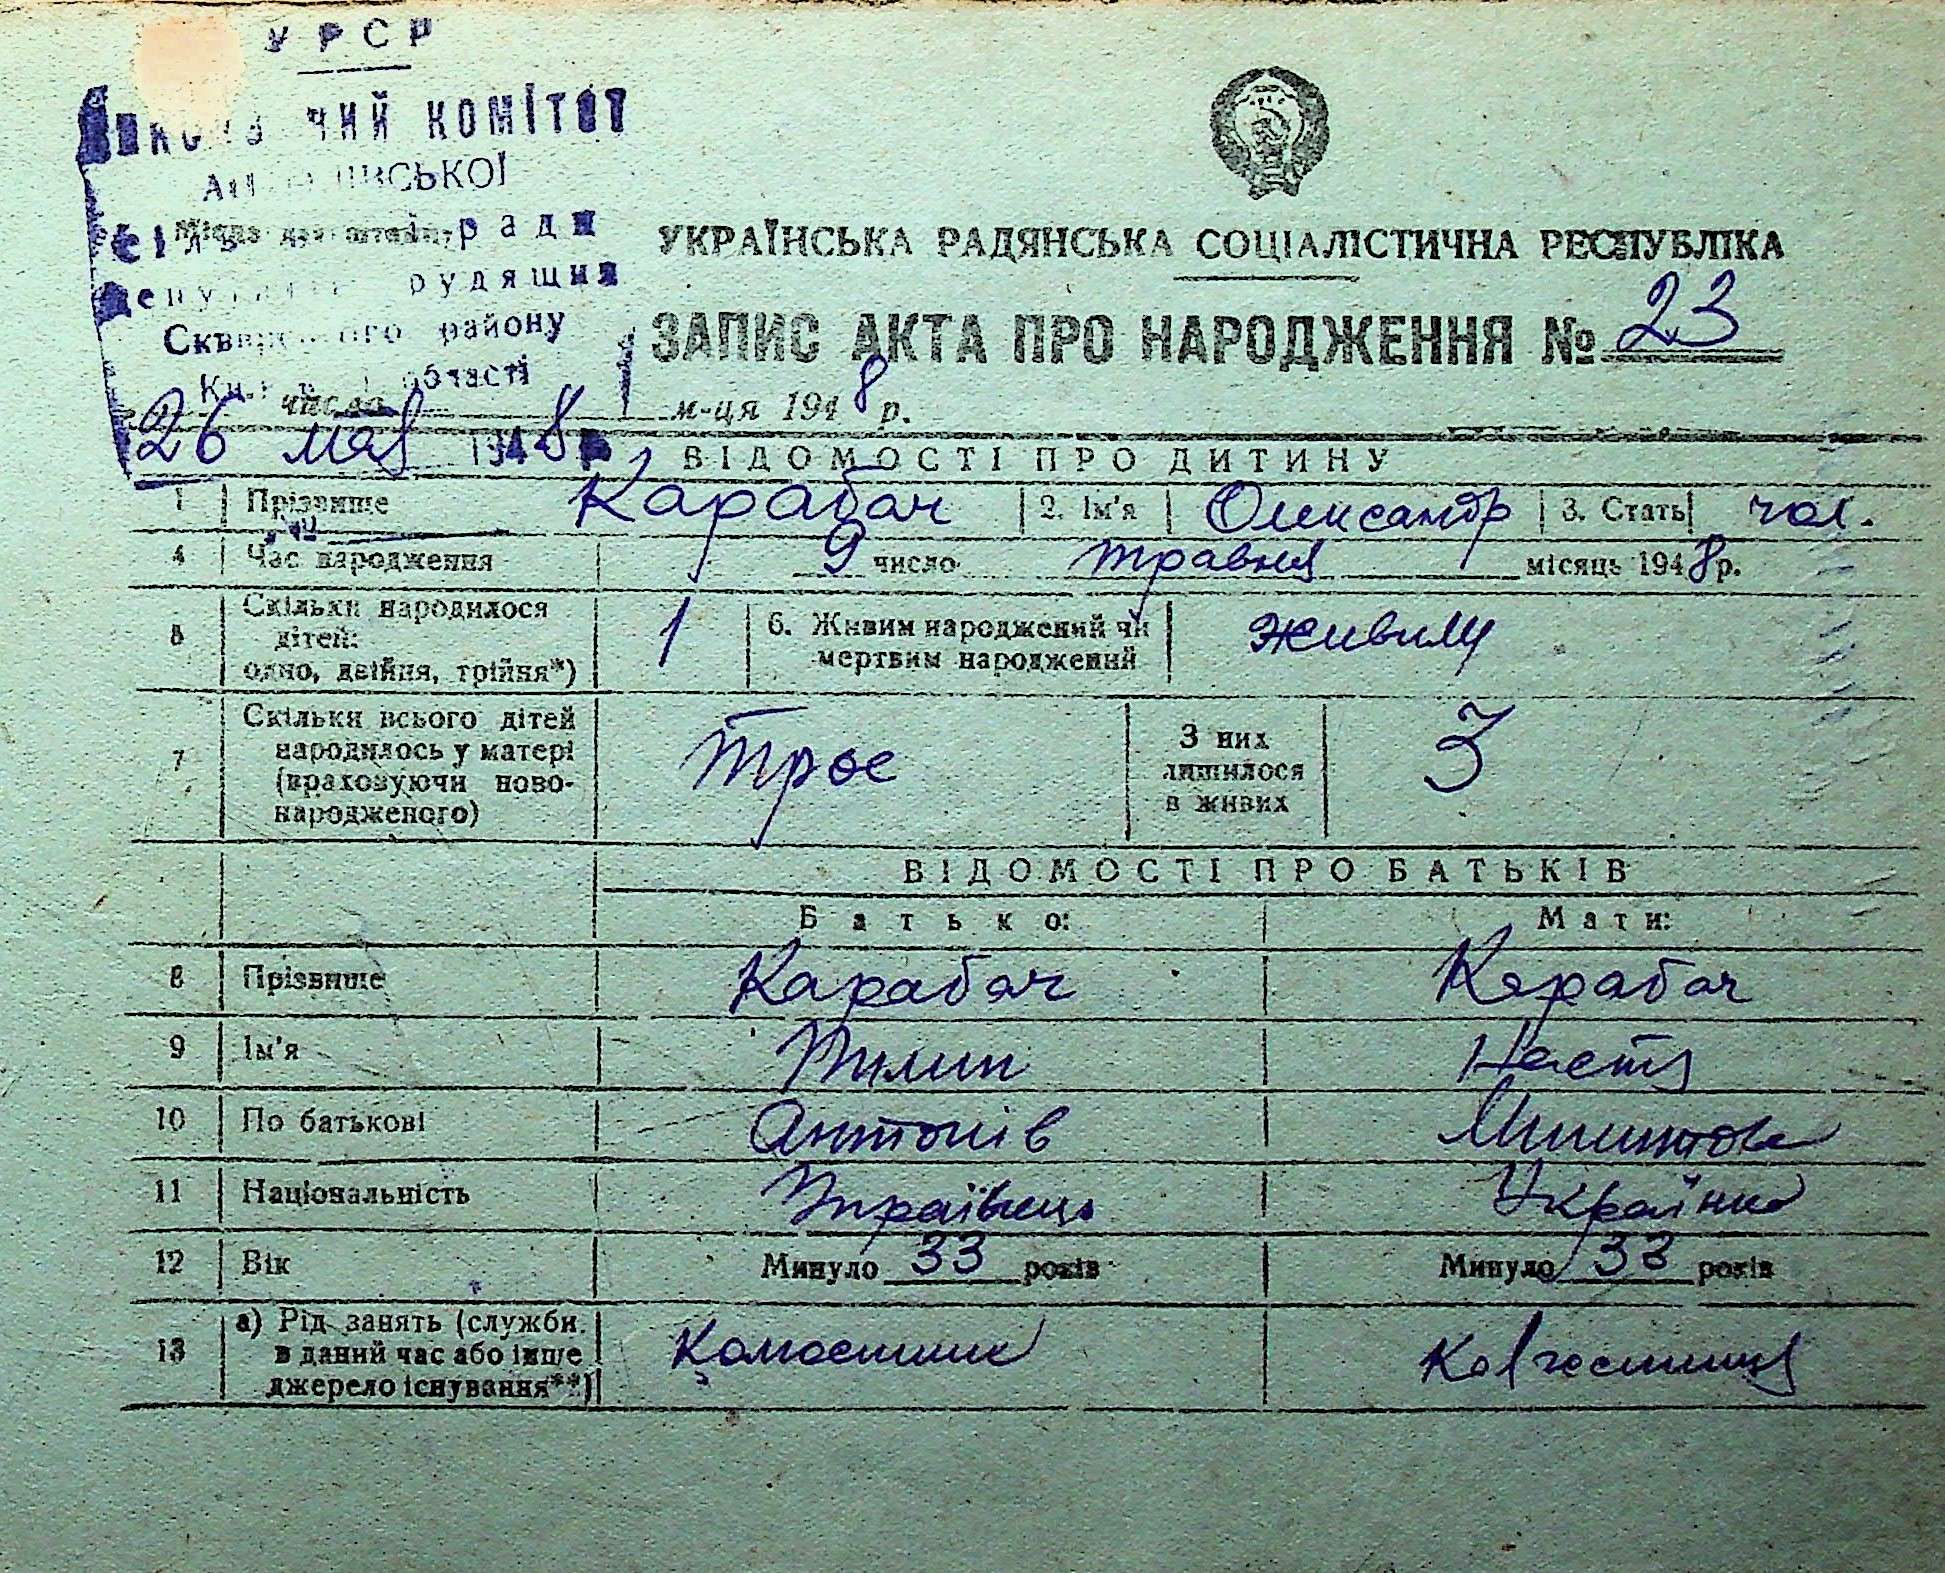 УРСР
чий комітет
ської
ради
рудящих
району
області
УКРАЇНСЬКА РАДЯНСЬКА СОЦІАЛІСТИЧНА РЕСПУБЛІКА
ЗАПИС АКТА ПРО НАРОДЖЕННЯ № 23
число м-ця 1948 р.
26 мая 1948 р
ВІДОМОСТІ ПРО ДИТИНУ
1 Прізвище Карабач 2. Ім'я Олександр 3. Стать чол.
4 Час народження 9 число травня місяць 1948 р.
5 Скільки народилося дітей: одно, двійня, трійня*) 1 6. Живим народжений чи мертвим народжений живим
7 Скільки всього дітей народилось у матері (враховуючи новонародженого) Троє З них лишилося в живих 3
ВІДОМОСТІ ПРО БАТЬКІВ
Батько: Мати:
8 Прізвище Карабач Карабач
9 Ім'я Пилип Настя
10 По батькові Антонів
11 Національність Українець Українка
12 Вік Минуло 33 років Минуло 33 років
13 а) Рід занять (служби в даний час або інше джерело існування**) Колгоспник Колгоспниця